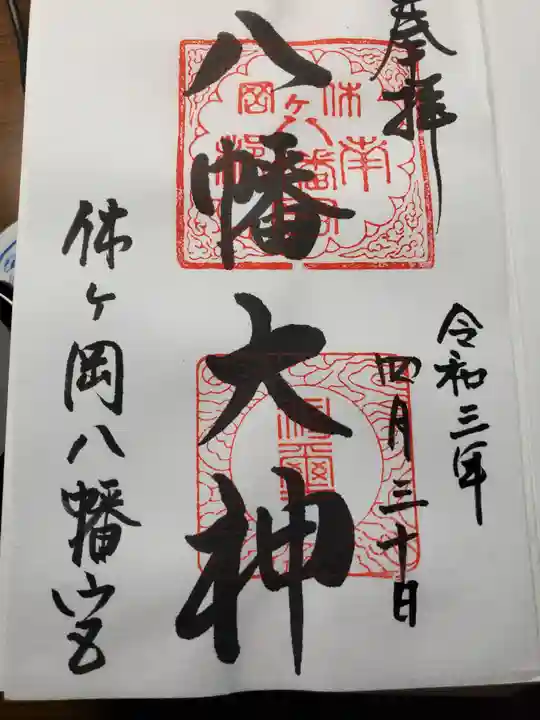 奉拝
令和三年
四月三十日
八幡大神
休ヶ岡八幡宮
休ヶ岡
八幡
南